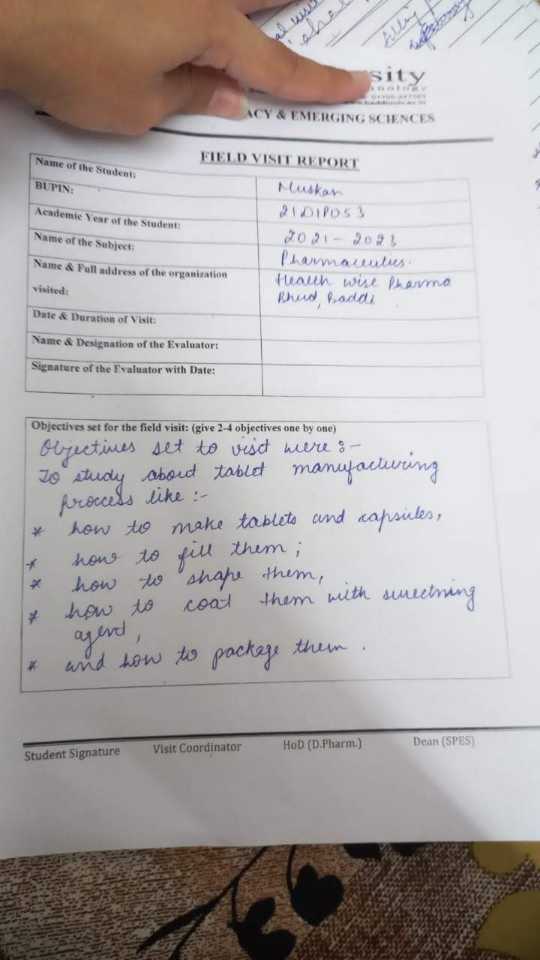 sity
ACY & EMERGING SCIENCES
FIELD VISIT REPORT
Name of the Student: Muskan
BUPIN: 21D1P053
Academic Year of the Student: 2021-2023
Name of the Subject: Pharmaceutics.
Name & Full address of the organization Health wise Pharma
visited: Bhud, Baddi
Date & Duration of Visit:
Name & Designation of the Evaluator:
Signature of the Evaluator with Date:
Objectives set for the field visit: (give 2-4 objectives one by one)
Objectives set to visit were :-
To study about tablet manufacturing
process like :-
* how to make tablets and capsules,
* how to fill them ;
* how to shape them,
* how to coat them with sweetning
agent,
* and how to package them .
Student Signature Visit Coordinator HoD (D.Pharm.) Dean (SPES)